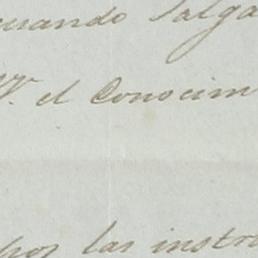 cuando salga
V. el Conocim
por las instru